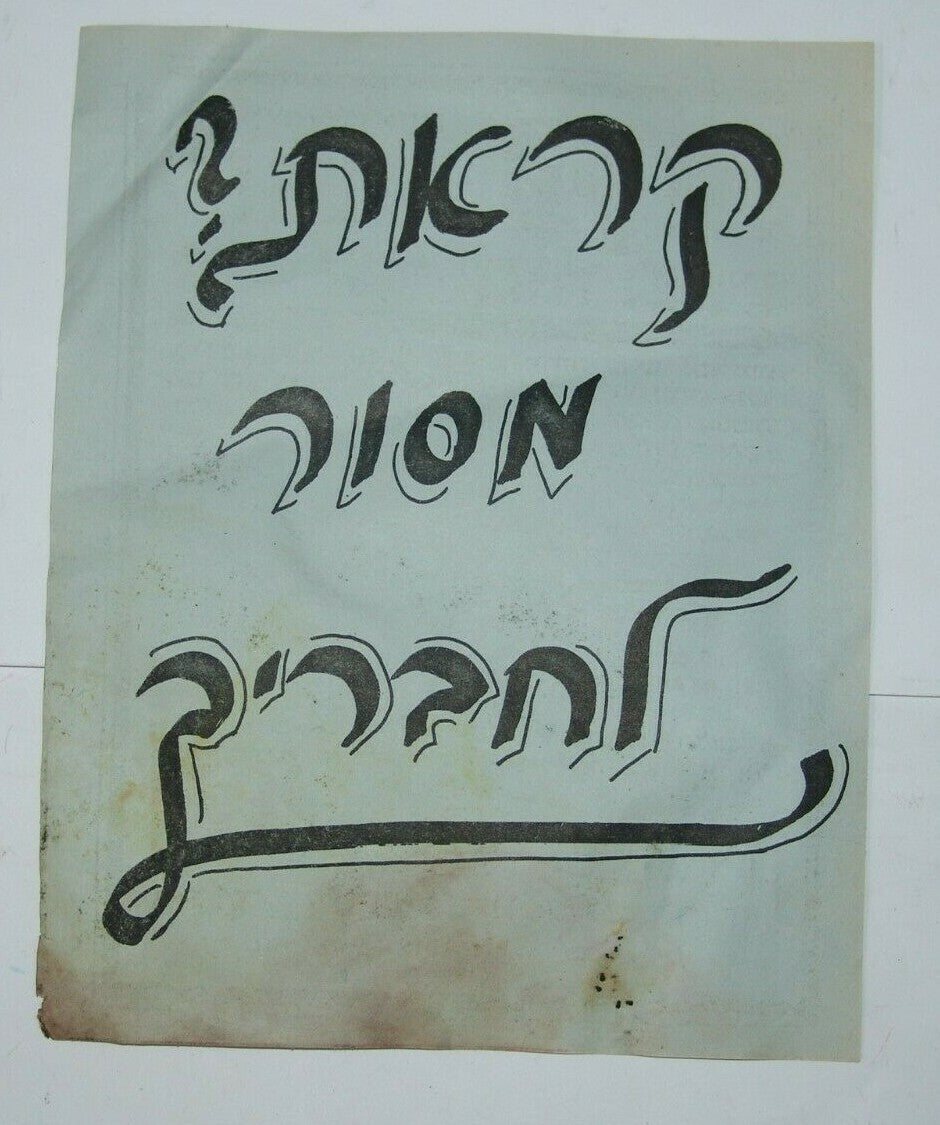 קראת?
מסור
לחבריך